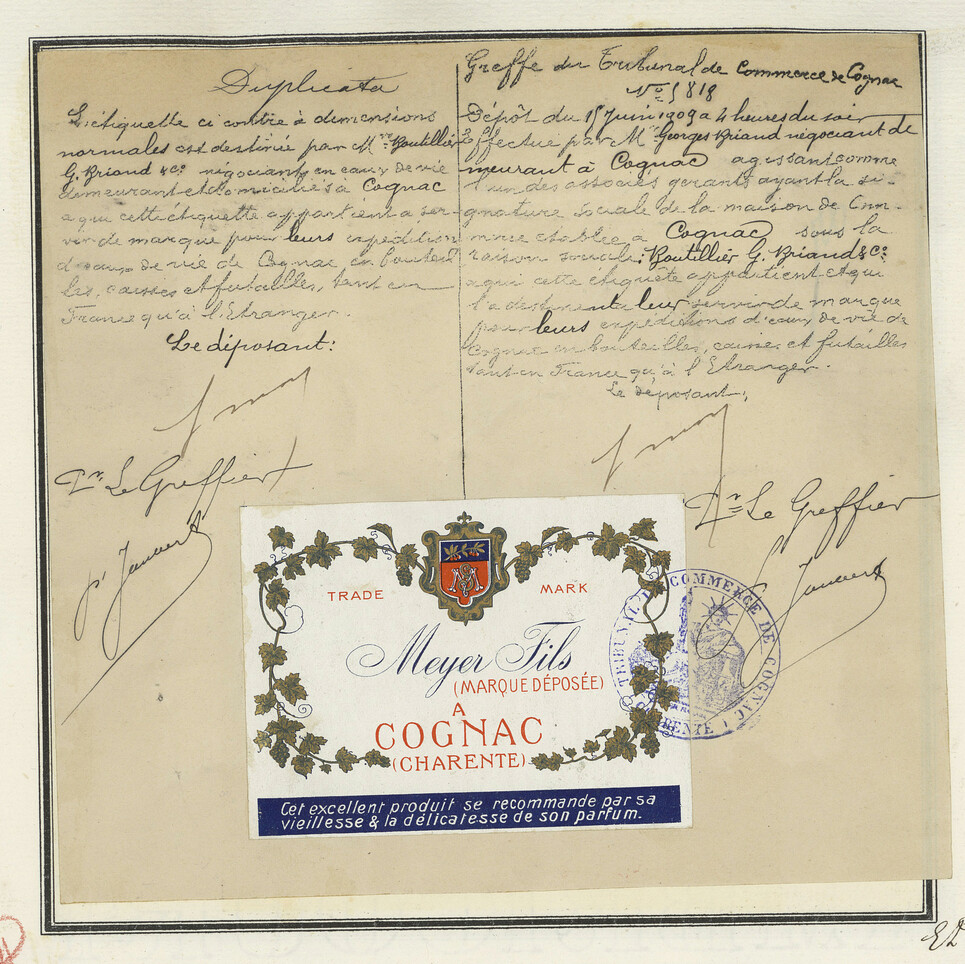 Duplicata
L'étiquette ci contre à dimensions
normales est destinée par Mrs Boutillier
G. Briand & Cie négociants en eaux de vie
demeurant et domiciliés à Cognac
a qui cette étiquette appartient a ser-
vir de marque pour leurs expéditions
d'eaux de vie de Cognac en bouteil
les, caisses et futailles, tant en
France qu'à l'Etranger.
Le déposant:
Pr Le Greffier
Greffe du Tribunal de Commerce de Cognac
No 5818
Dépôt du 15 Juin 1909 a 4 heures du soir
effectué par Mr Georges Briand négociant de
meurant à Cognac agissant comme
l'un des associés gérants ayant la si-
gnature sociale de la maison de Com-
merce établie à Cognac sous la
raison sociale: Boutillier G. Briand & Cie
a qui cette étiquête appartient et qui
l'a destinent a leur servir de marque
pour leurs expéditions d'eaux de vie de
Cognac en bouteilles, caisses et futailles
tant en France qu'à l'Etranger.
Le déposant:
Pr Le Greffier
TRADE MARK
Meyer Fils
(MARQUE DÉPOSÉE)
A
COGNAC
(CHARENTE)
Cet excellent produit se recommande par sa
vieillesse & la délicatesse de son parfum.
TRIBUNAL DE COMMERCE DE COGNAC